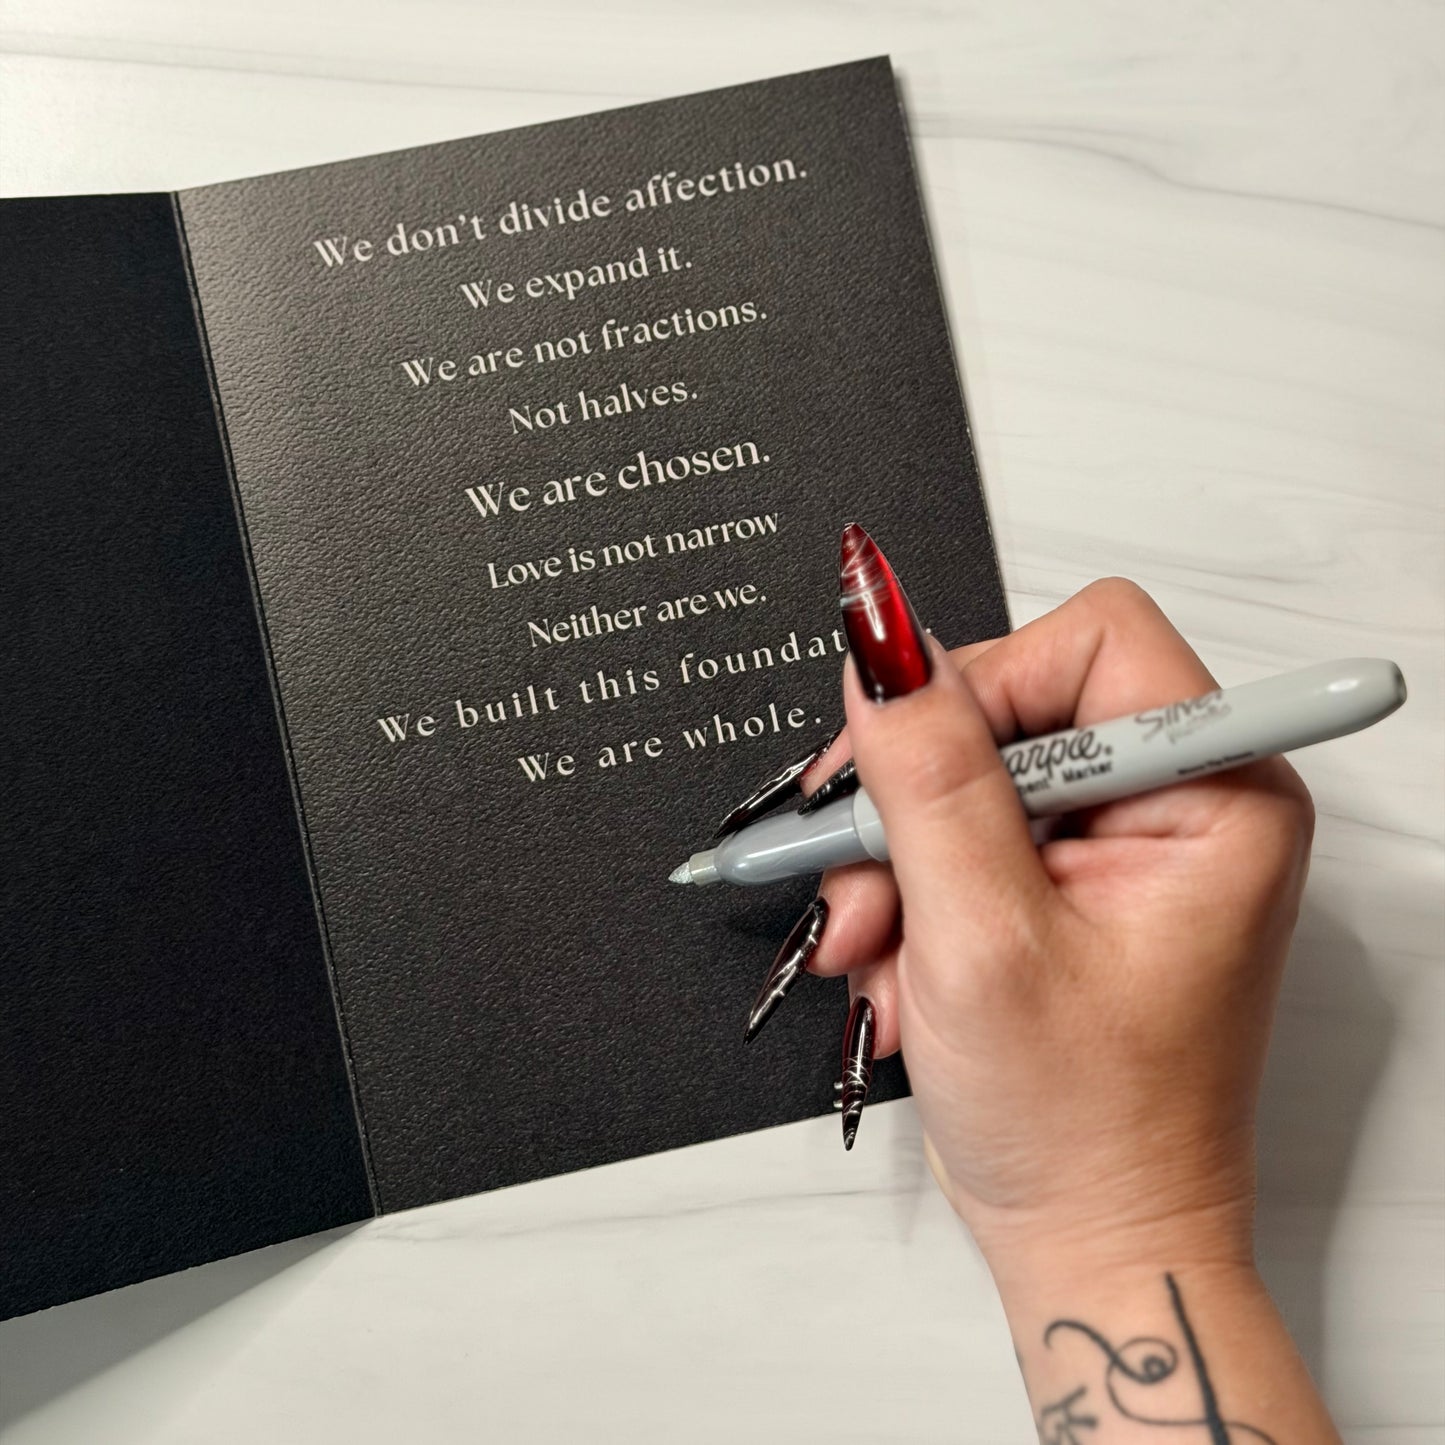 We don't divide affection.
We expand it.
We are not fractions.
Not halves.
We are chosen.
Love is not narrow
Neither are we.
We built this foundat
We are whole.
arpie®
Marker